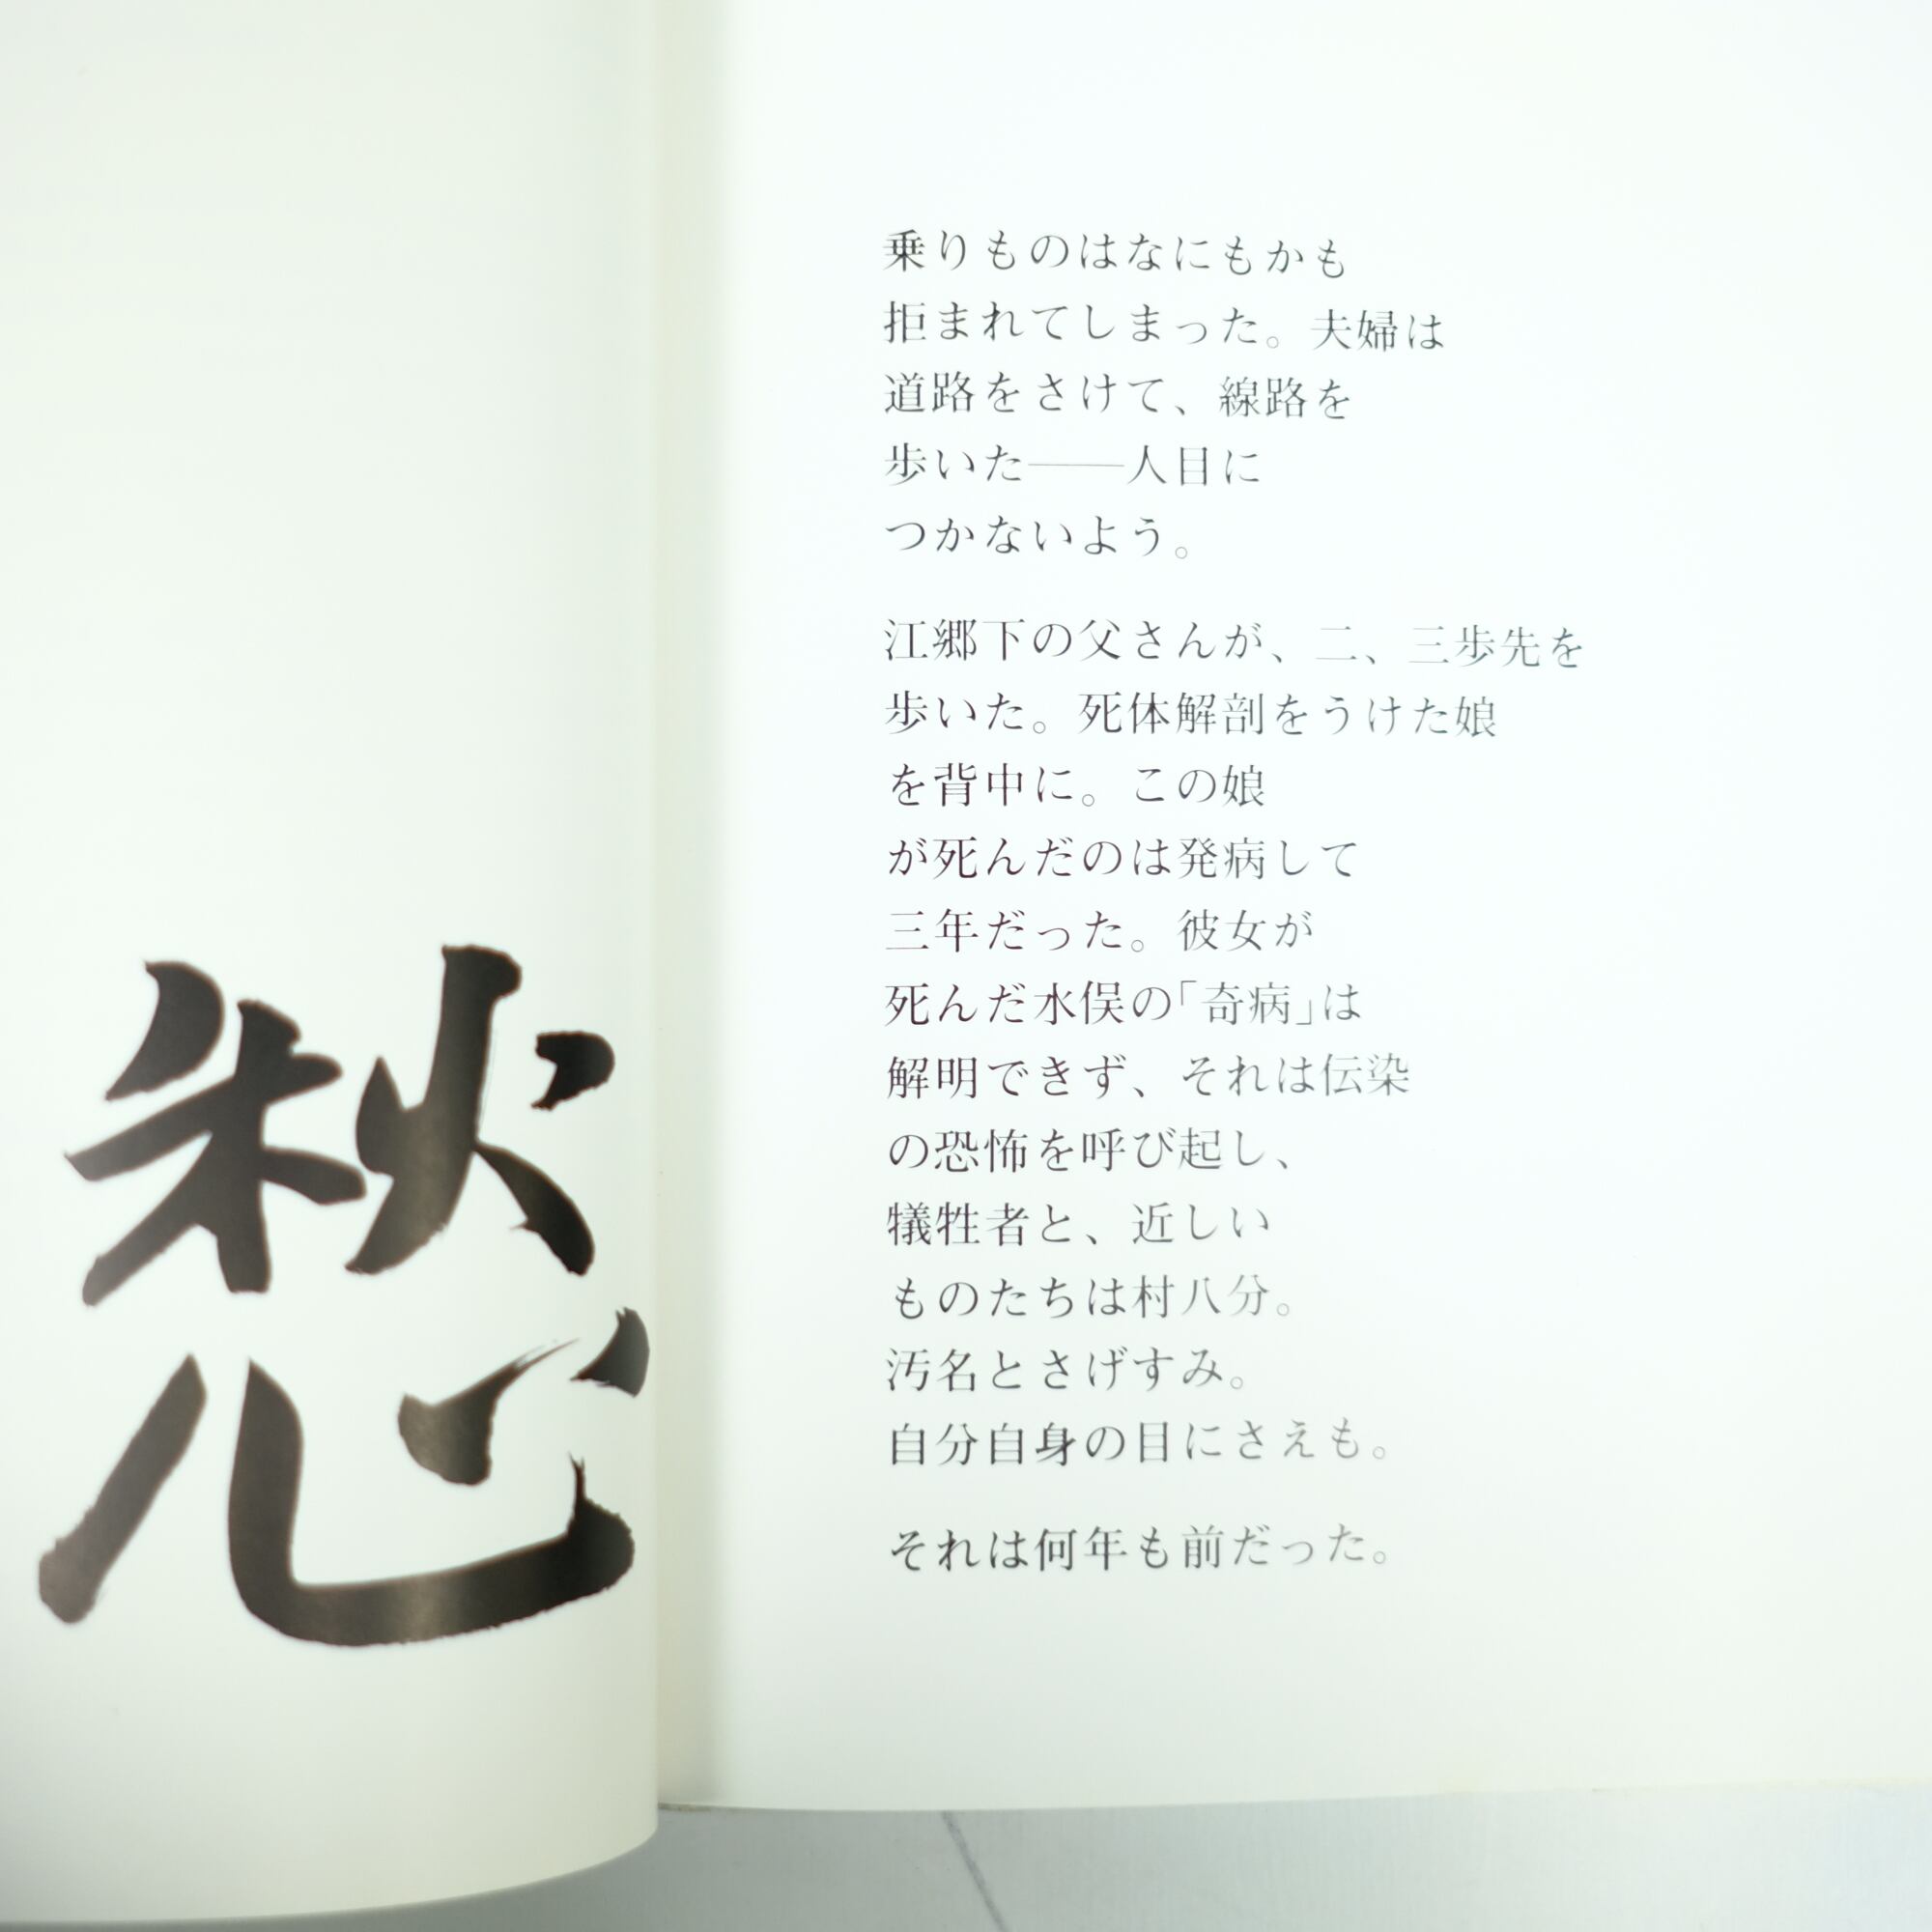 愁
乗りものはなにもかも
拒まれてしまった。夫婦は
道路をさけて、線路を
歩いた——人目に
つかないよう。
江郷下の父さんが、二、三歩先を
歩いた。死体解剖をうけた娘
を背中に。この娘
が死んだのは発病して
三年だった。彼女が
死んだ水俣の「奇病」は
解明できず、それは伝染
の恐怖を呼び起し、
犠牲者と、近しい
ものたちは村八分。
汚名とさげすみ。
自分自身の目にさえも。
それは何年も前だった。